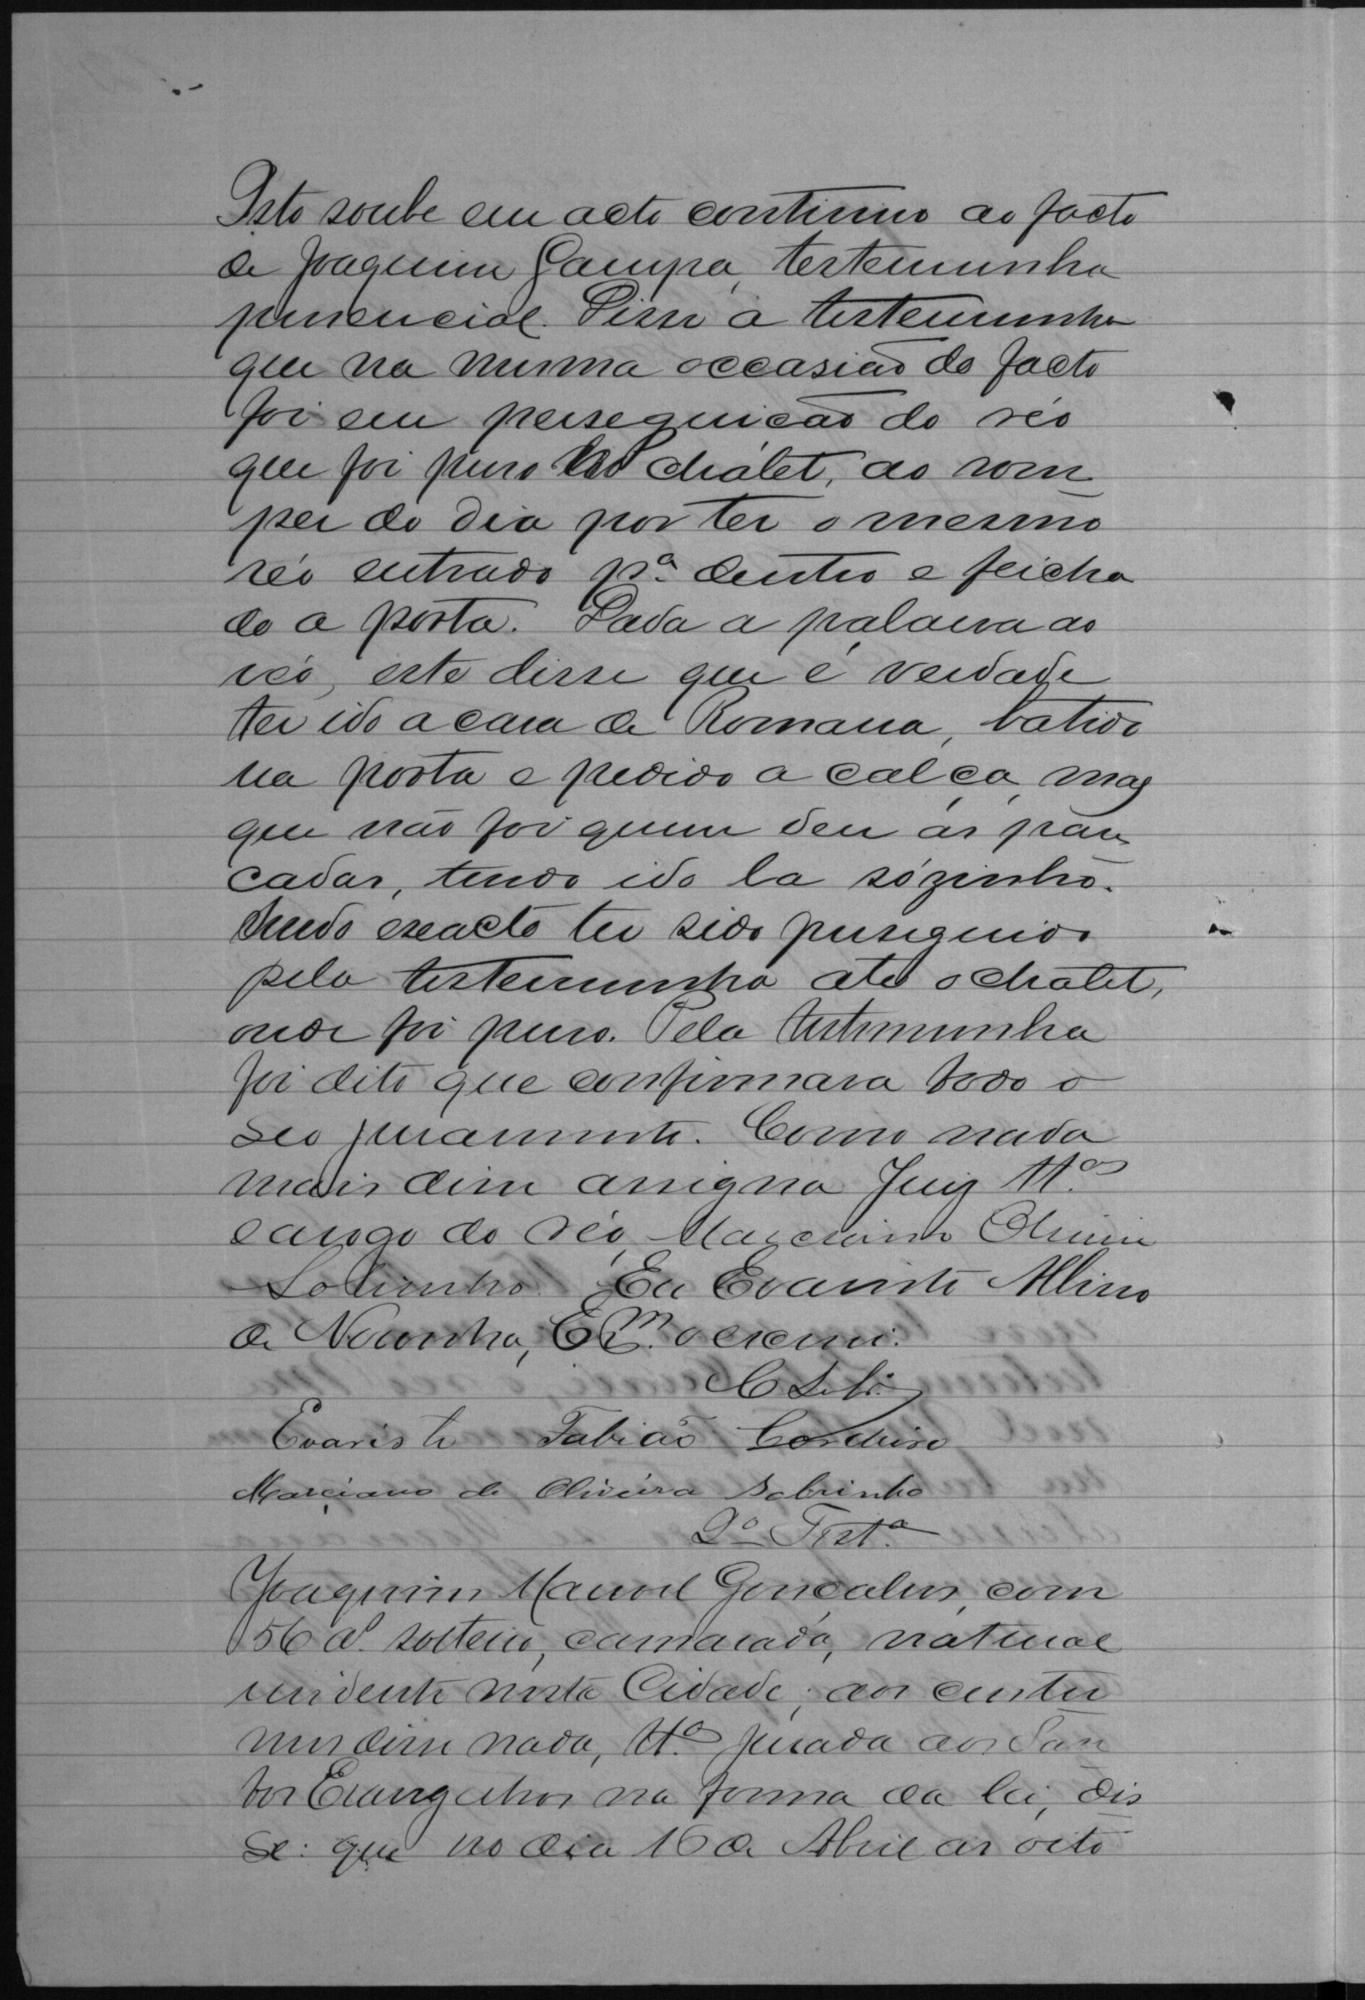 Isto soube em acto continuo ao facto
de Joaquim Gampa, testemunha
presencial. Disse a testemunha
que na mesma occasião do facto
foi em perseguicão do réo
que foi preso no chalet, ao rom
per do dia por ter o mesmo
réo entrado pª dentro e feicha
do a porta. Dada a palavra ao
réo, este disse que é verdade
ter ido a casa de Romana, batido
na porta e pedido a calça, mas
que não foi quem deu as pan
cadas, tendo ido la sózinho.
Sendo exacto ter sido perseguido
pela testemunha até o chalet,
onde foi preso. Pela testemunha
foi dito que confirmava todo o
seo juramento. Como nada
mais disse assigna Juiz Ttª
a rogo do réo, Marciano Oliveira
Sobrinho. Eu Evaristo Albino
de Noronha, Eªm. o escrevi.
Evaristo Fabião Cordeiro
Marciano de Oliveira Sobrinho
2º Testª
Joaquim Manoel Gonçalves, com
56 aˢ. solteiro, camarada, natural
residente nesta Cidade; aos custu
mes disse nada, Ttª jurada aos San
tos Evangelhos na forma da lei, dis
se: que no dia 16 de Abril as oito